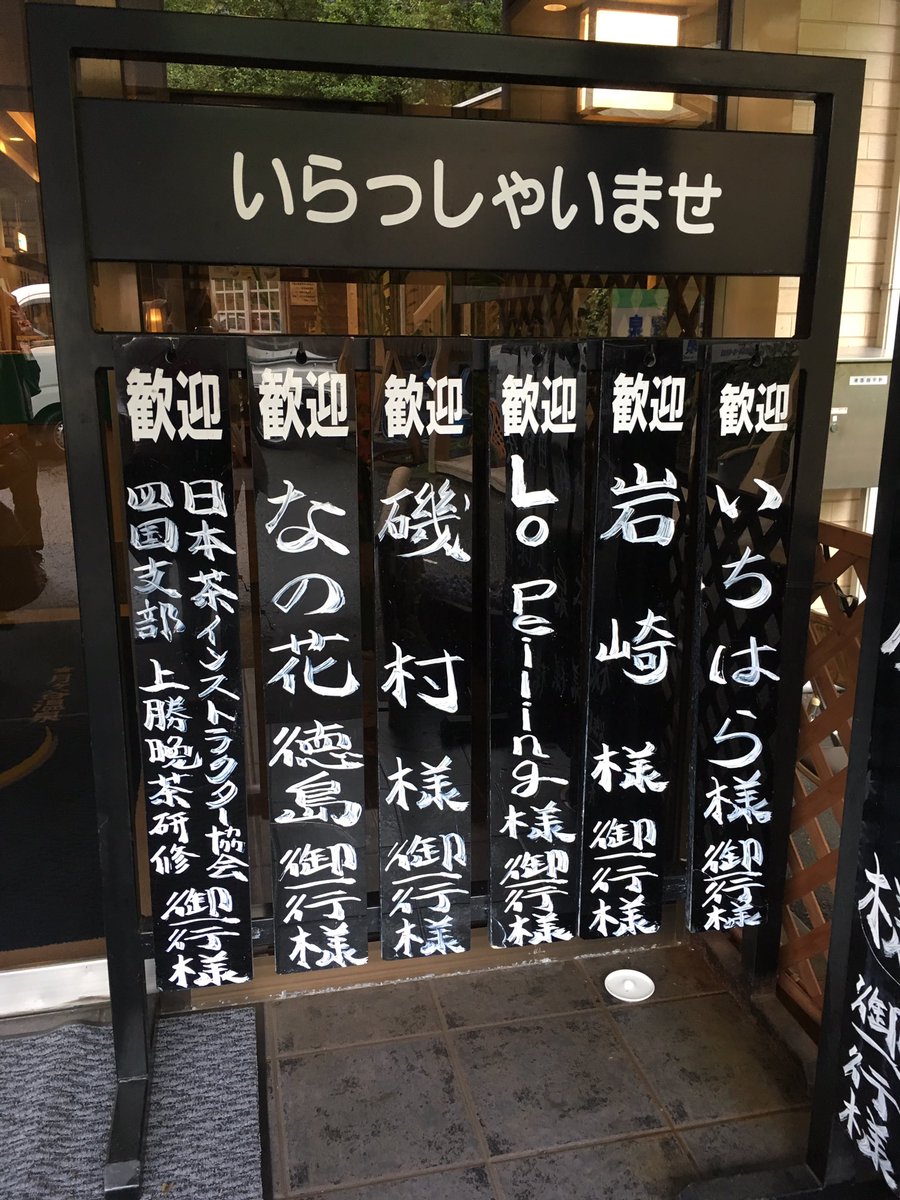 いらっしゃいませ
歓迎
いちはら様御一行様
歓迎
岩崎様御一行様
歓迎
Lo peiing様御一行様
歓迎
磯村様御一行様
歓迎
なの花徳島御一行様
歓迎
日本茶インストラクター協会
四国支部 上勝晩茶研修 御一行様
様御一行様